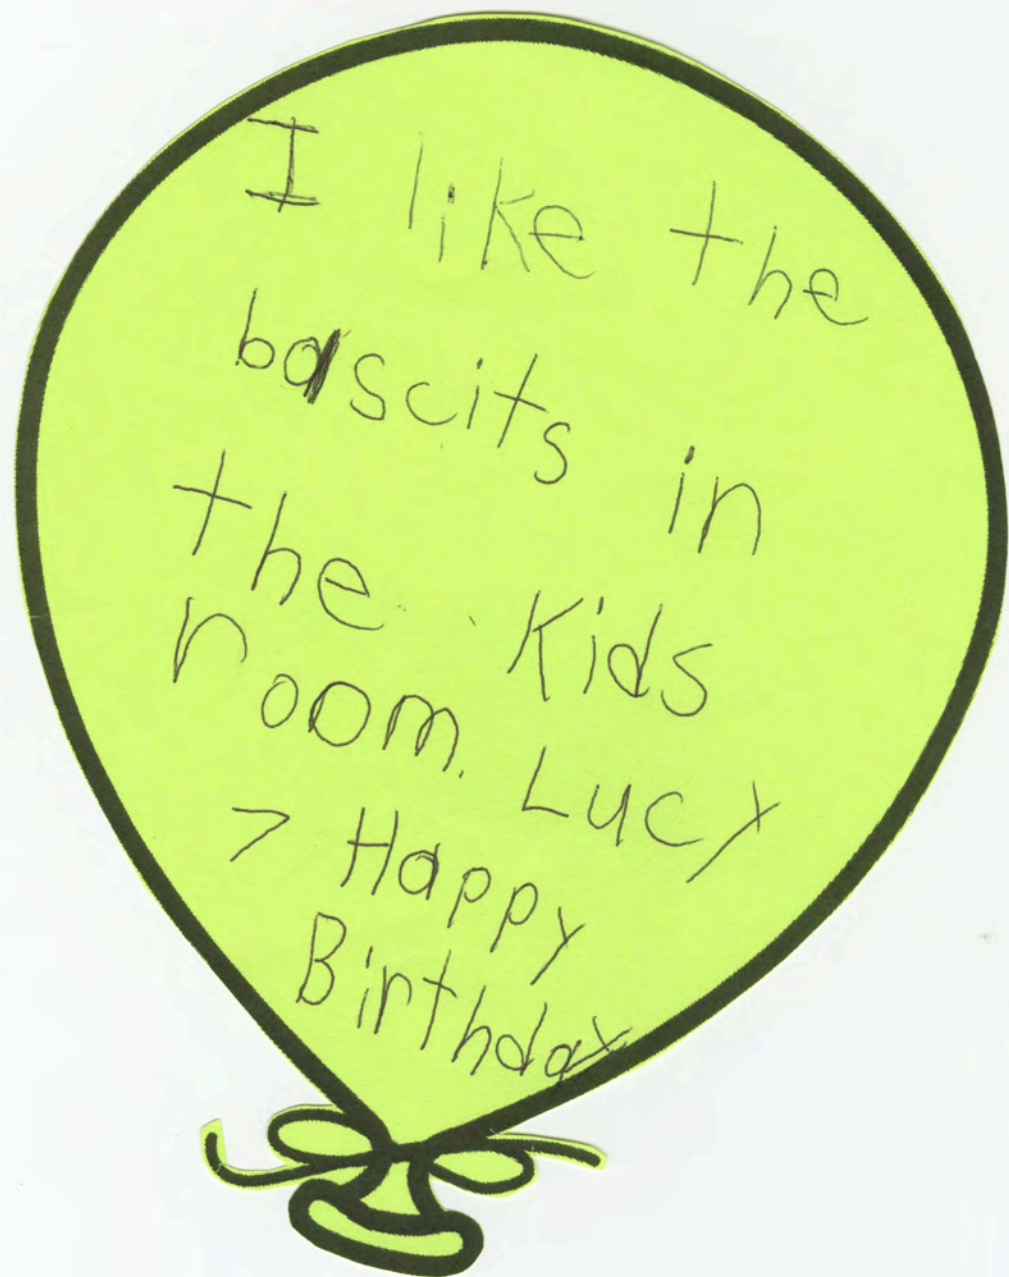 I like the
bascits in
the Kids
room. Lucy
7 Happy
Birthday